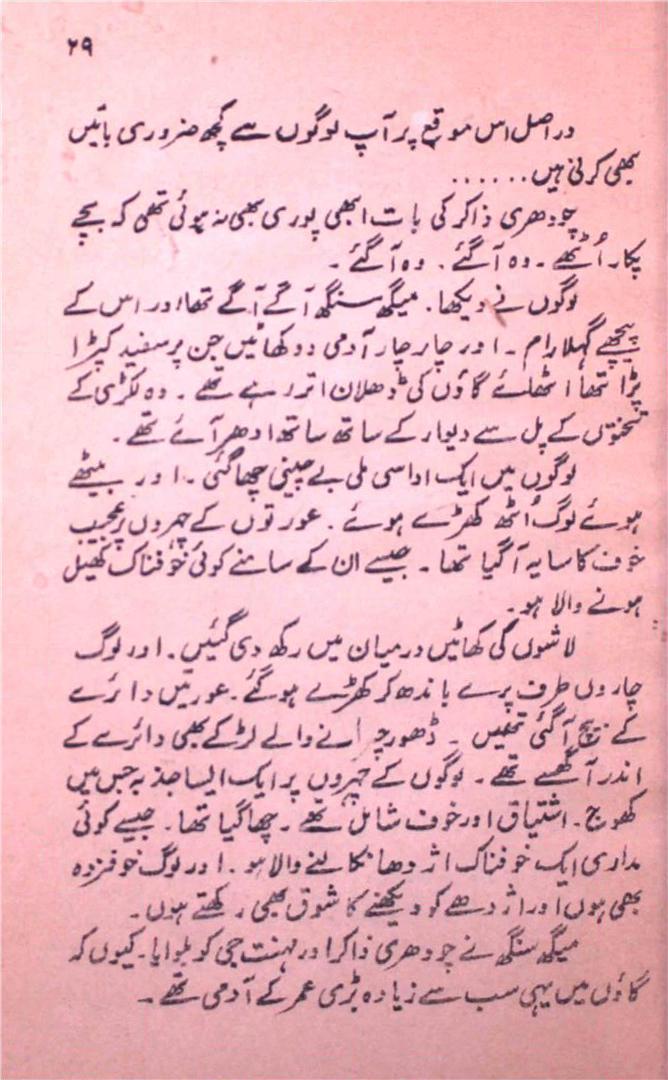 ۲۹
دراصل اس موقع پر آپ لوگوں سے کچھ ضروری باتیں
بھی کرنی ہیں......
چودھری ذاکر کی بات ابھی پوری بھی نہ ہوئی تھی کہ بچے
پکار اُٹھے ۔ وہ آ گئے ۔ وہ آ گئے ۔
لوگوں نے دیکھا ۔ میگھ سنگھ آگے آگے تھا اور اس کے
پیچھے گہلا رام ۔ اور چار چار آدمی دو کھاٹیں جن پر سفید کپڑا
پڑا تھا اٹھائے گاؤں کی ڈھلان اتر رہے تھے ۔ وہ لکڑی کے
تختوں کے پل سے دیوار کے ساتھ ساتھ ادھر آئے تھے ۔
لوگوں میں ایک اداسی ملی بے چینی چھا گئی ۔ اور بیٹھے
ہوئے لوگ اُٹھ کھڑے ہوئے ۔ عورتوں کے چہروں پر عجیب
خوف کا سایہ آ گیا تھا ۔ جیسے ان کے سامنے کوئی خوفناک کھیل
ہونے والا ہو ۔
لاشوں کی کھاٹیں درمیان میں رکھ دی گئیں ۔ اور لوگ
چاروں طرف پرے باندھ کر کھڑے ہو گئے ۔ عورتیں دائرے
کے بیچ آ گئی تھیں ۔ ڈھور چرانے والے لڑکے بھی دائرے کے
اندر آ گھسے تھے ۔ لوگوں کے چہروں پر ایک ایسا جذبہ جس میں
کھوج ۔ اشتیاق اور خوف شامل تھے ۔ چھا گیا تھا ۔ جیسے کوئی
مداری ایک خوفناک اژدھا نکالنے والا ہو ۔ اور لوگ خوفزدہ
بھی ہوں اور اژدھے کو دیکھنے کا شوق بھی رکھتے ہوں ۔
میگھ سنگھ نے چودھری ذاکر اور مہنت جی کو بلوایا ۔ کیوں کہ
گاؤں میں یہی سب سے زیادہ بڑی عمر کے آدمی تھے ۔